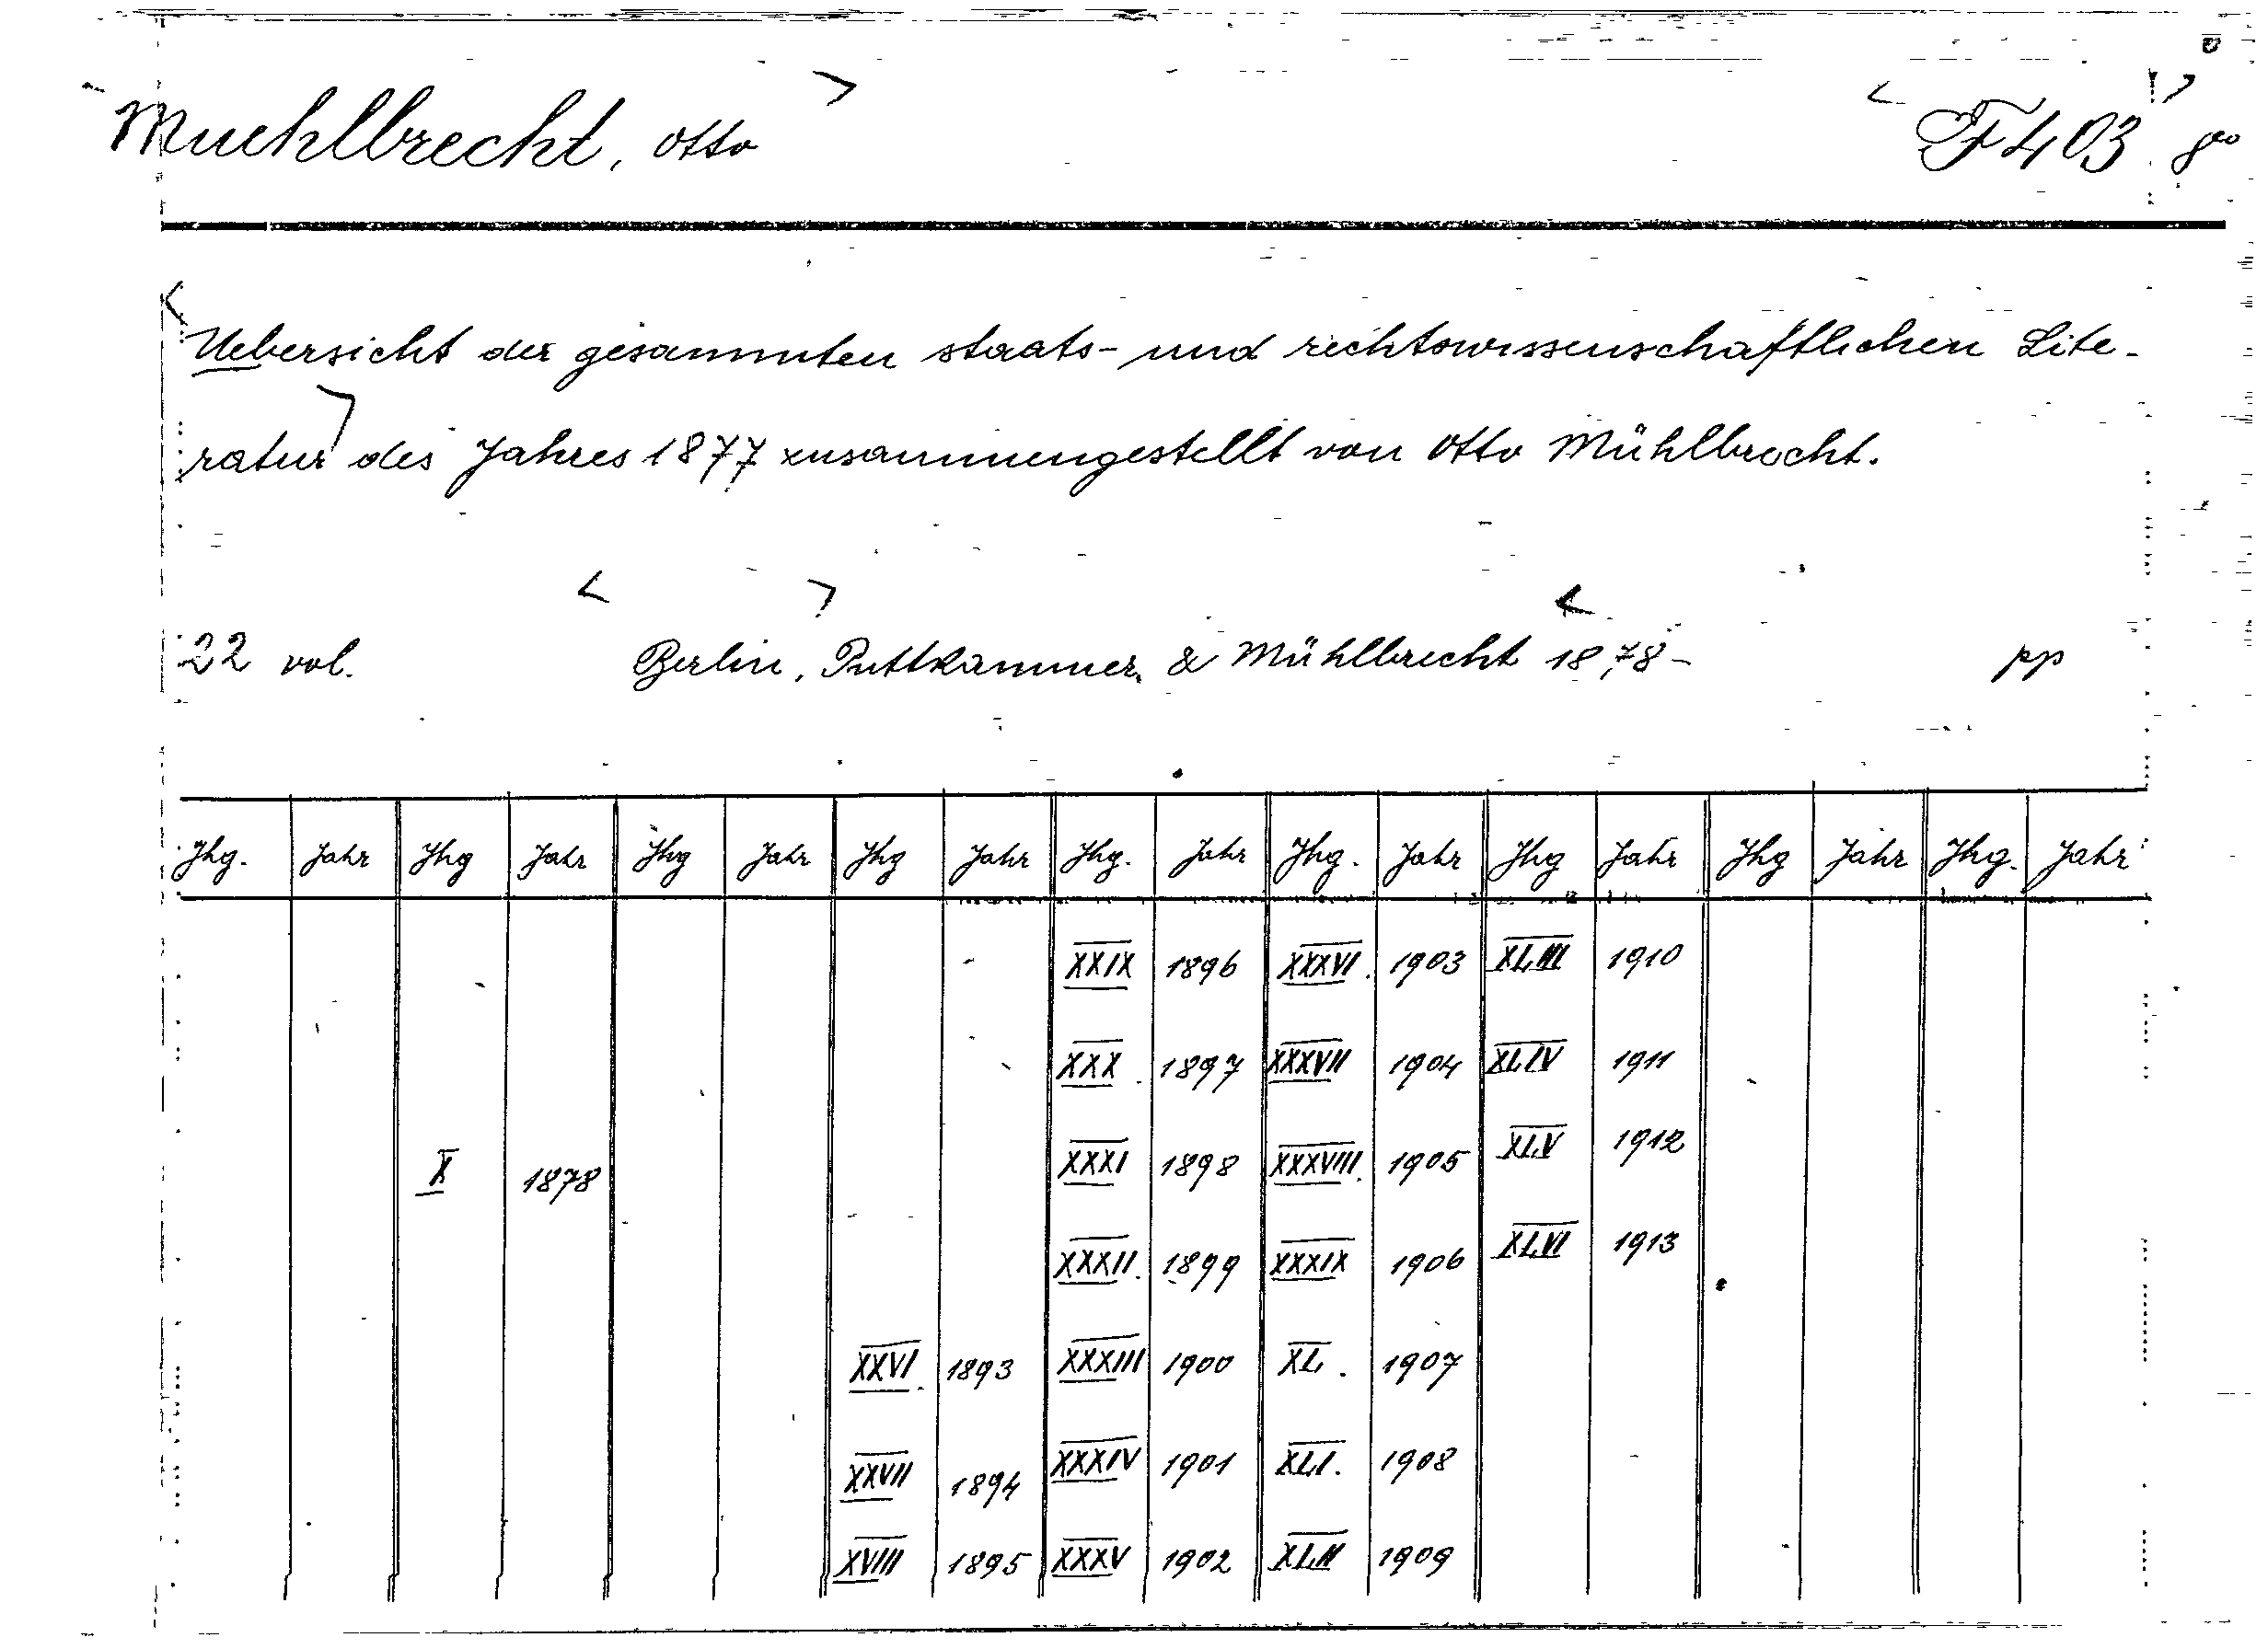 Muehlbrecht, Otto F 403 8vo
Uebersicht der gesammten staats- und rechtswissenschaftlichen Lite-
ratur des Jahres 1877 zusammengestellt von Otto Mühlbrecht.
22 vol. Berlin, Puttkammer & Mühlbrecht 1878- pp
Jhg. Jahr Jhg Jahr Jhg Jahr Jhg Jahr Jhg. Jahr Jhg. Jahr Jhg Jahr Jhg Jahr Jhg. Jahr
XXIX 1896 XXXVI. 1903 XLIII 1910
XXX. 1897 XXXVII 1904 XLIV 1911
X 1878 XXXI 1898 XXXVIII. 1905 XLV 1912
XXXII. 1899 XXXIX 1906 XLVI 1913
XXVI. 1893 XXXIII 1900 XL. 1907
XXVII 1894 XXXIV 1901 XLI. 1908
XVIII 1895 XXXV 1902 XLII 1909